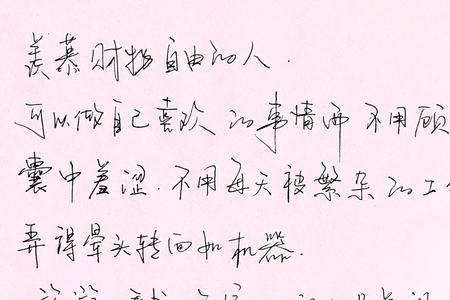 羡慕财务自由的人.
可以做自己喜欢的事情而不用顾
囊中羞涩.不用每天被繁杂的工
弄得晕头转向如机器.